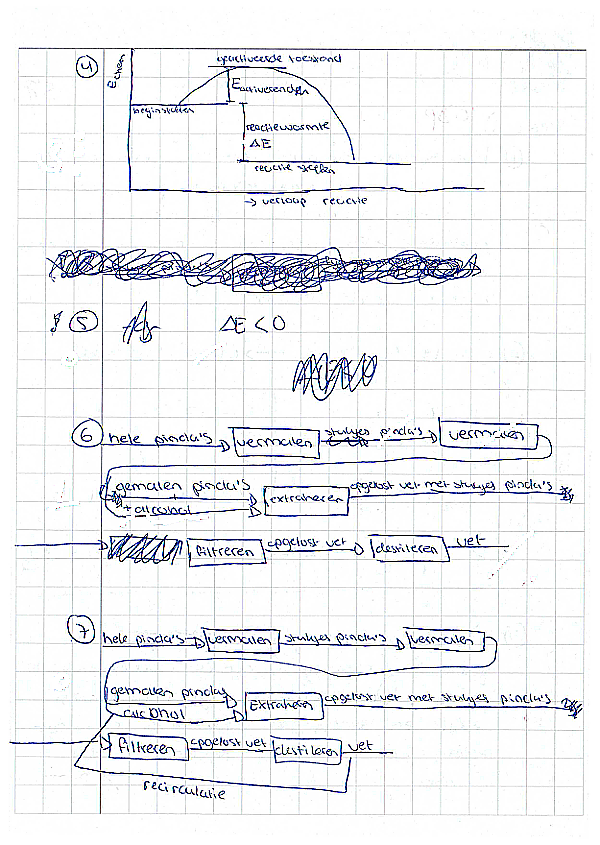 4
geactiveerde toestand
Echem
Eactiverend
beginstoffen
reactiewarmte
ΔE
reactie stoffen
→ verloop reactie
5 ΔE < 0
6 hele pinda's vermalen stukjes pinda's vermalen
gemalen pinda's extraheren opgelost vet met stukjes pinda's
+ alcohol
filtreren opgelost vet destileren vet
7 hele pinda's vermalen stukjes pinda's vermalen
gemalen pindas Extraheren opgelost vet met stukjes pinda's
alcohol
filtreren opgelost vet destileren vet
recirculatie